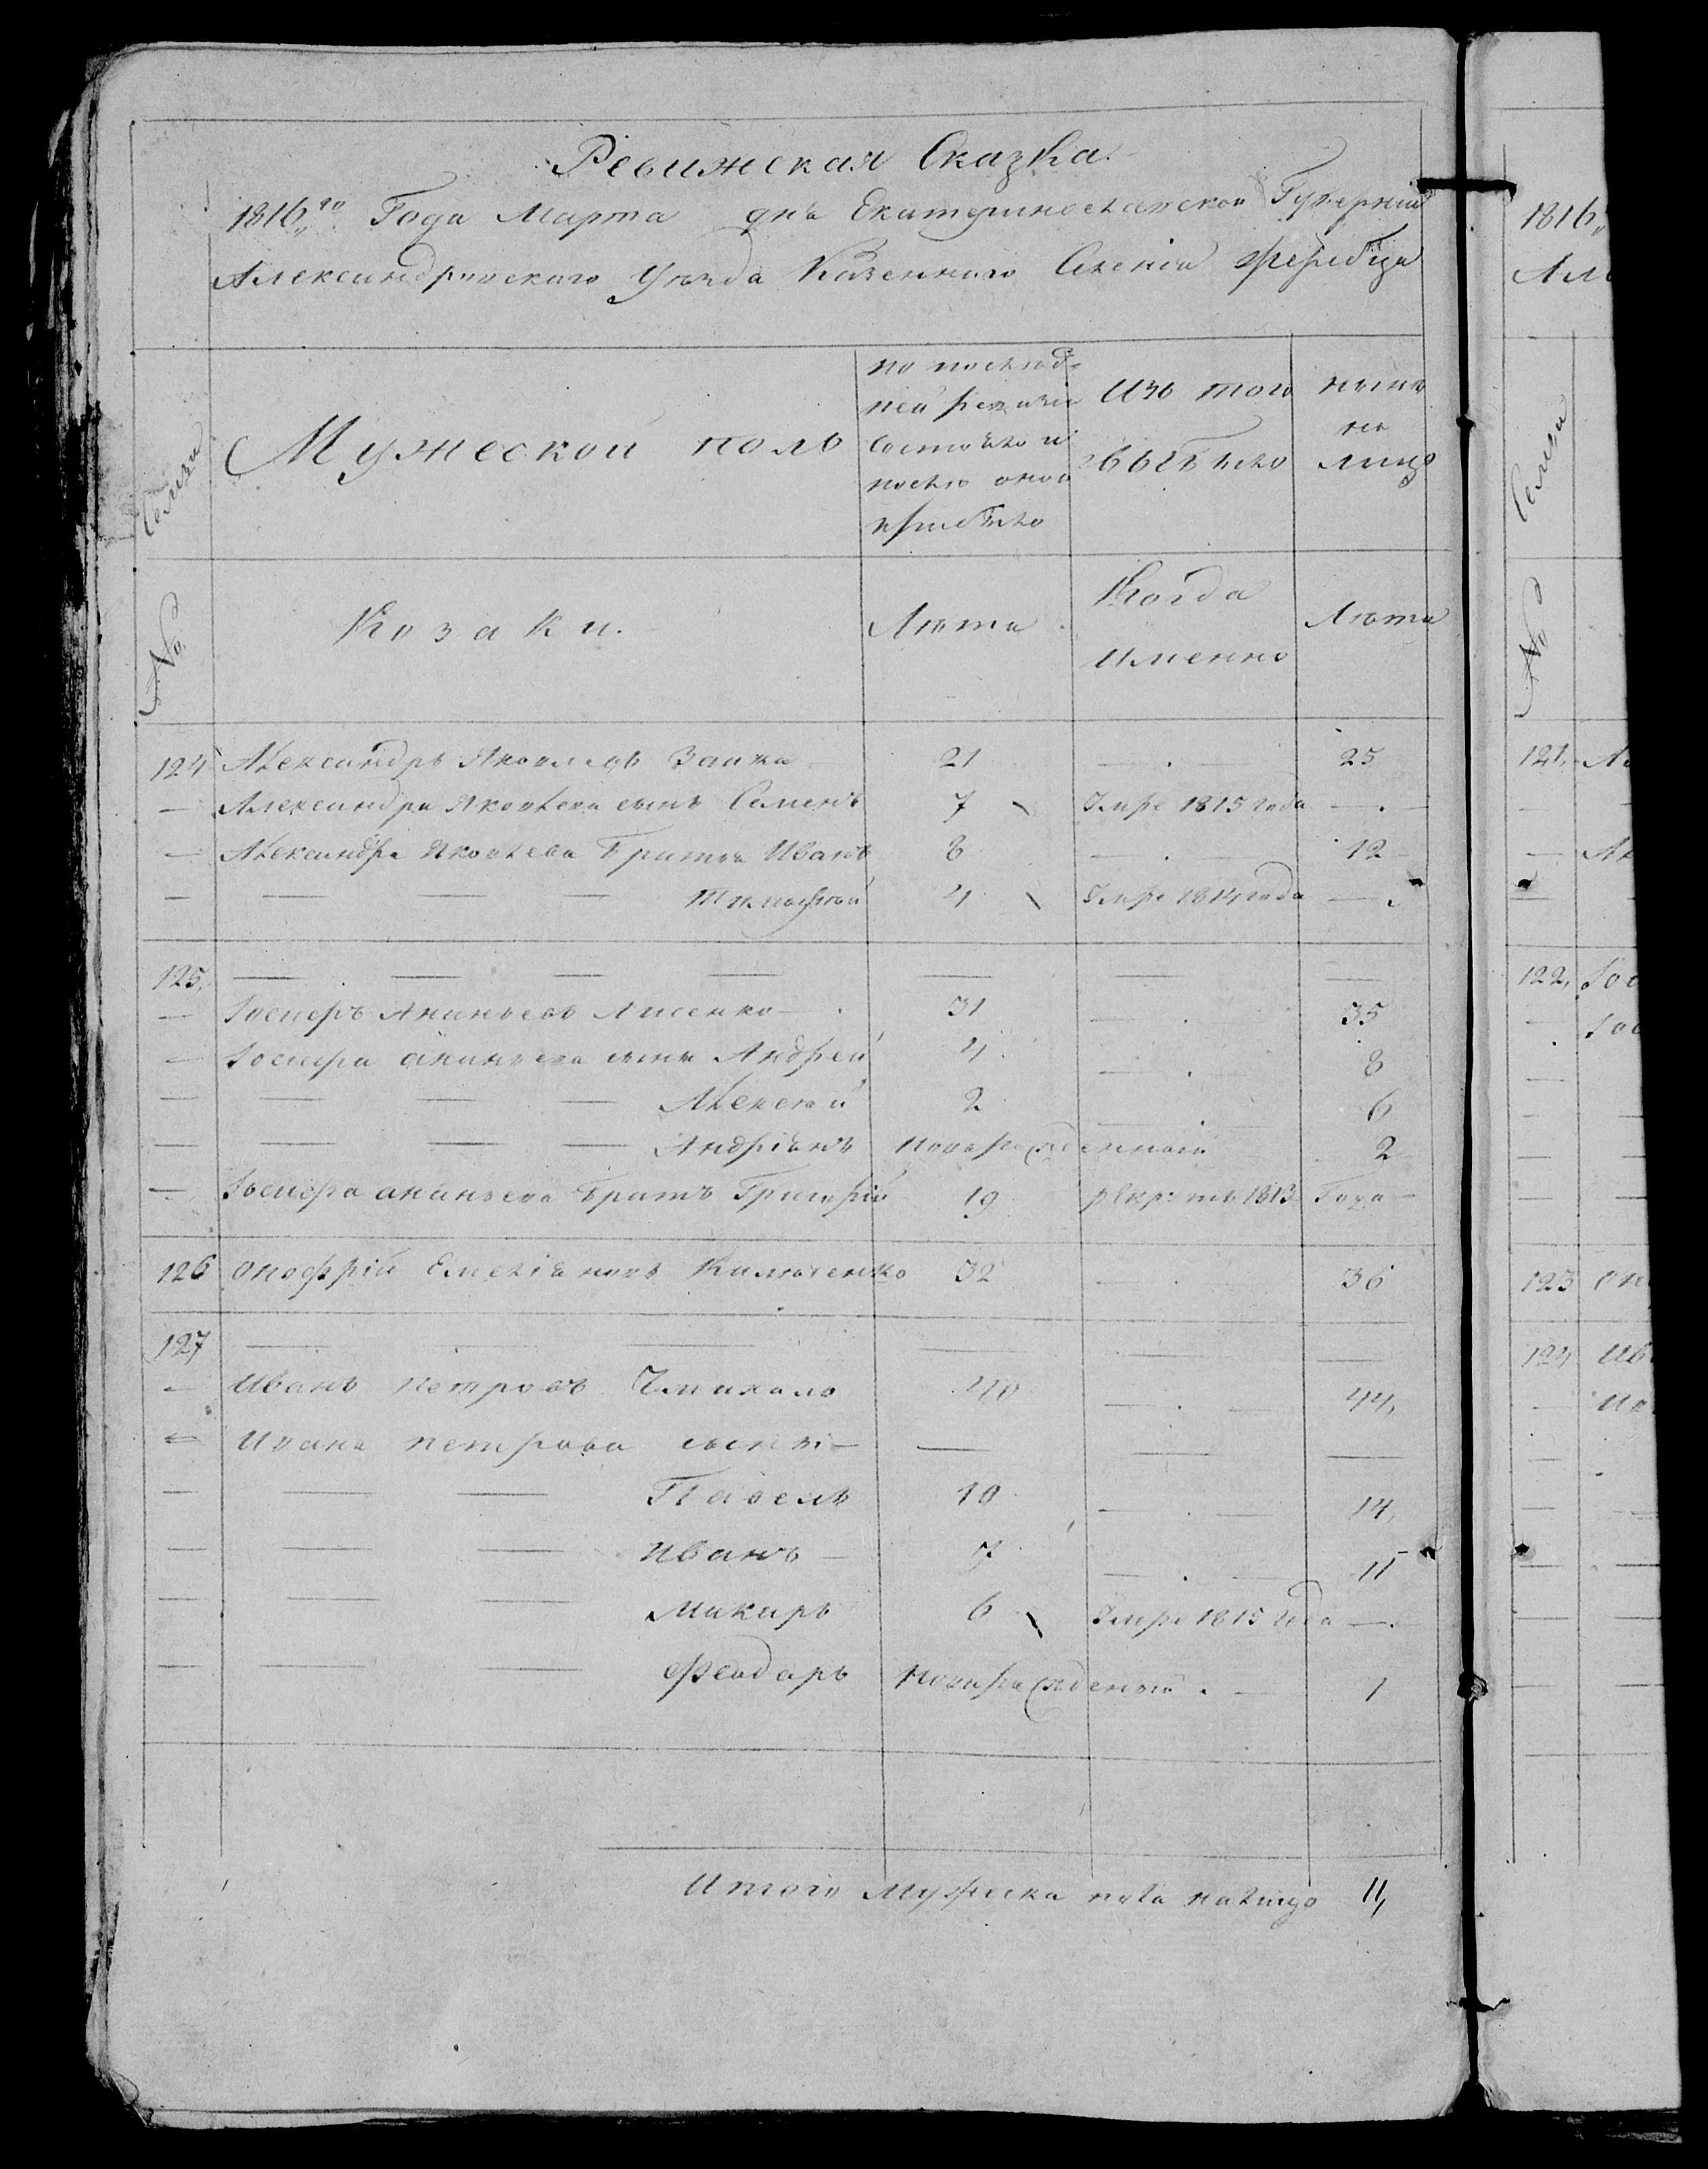 Ревижская Сказка.
1816го Года Марта дня Екатеринославской Губернии
Александровскаго Уезда Казеннаго Селения Жеребца
Семьи
Мужеской полъ
по послед-
ней ревизіи
состояло и
после оной
прибыло
Изъ того
выбыло
ныне
на
лицо
№
Козаки.
Лета
Когда
именно
Лета
124 Александръ Яковлевъ Заика 21 — . — 25
— Александра Яковлева сынъ Семенъ 7 Умре 1815 года — . —
— Александра Яковлева братья Иванъ 8 — . — 12
— — — — Тимофей 4 Умре 1814 года — .
125, — — — — — — —
— Іосифъ Ананьевъ Лисенко — . 31 — . — 35
— Іосифа ананьева сыны Андрей 4 — . — 8
— — — — Алексей 2 — . — 6
— — — — Андріянъ новорожденный 2
— Іосифа ананьева братъ Григорій 19 рекрутъ 1813 Года —
126 Онофрій Емеліановъ 32 — . — 36
127 — — — — — —
— Иванъ Петровъ 40 — . — 44,
— Ивана петрова сыны — — — —
— — — Павелъ 10 — . — 14,
— — — Иванъ — 7 — . — 11
— — — Макаръ 6 Умре 1815 года — .
— — — Феодаръ новорожденый . — 1
Итого мужеска пола налицо 11,
1816,,
Ал
Семьи
№
121, Ал
— Ал
122, Іос
Іос
123 Оно
124 Ив
— Ив